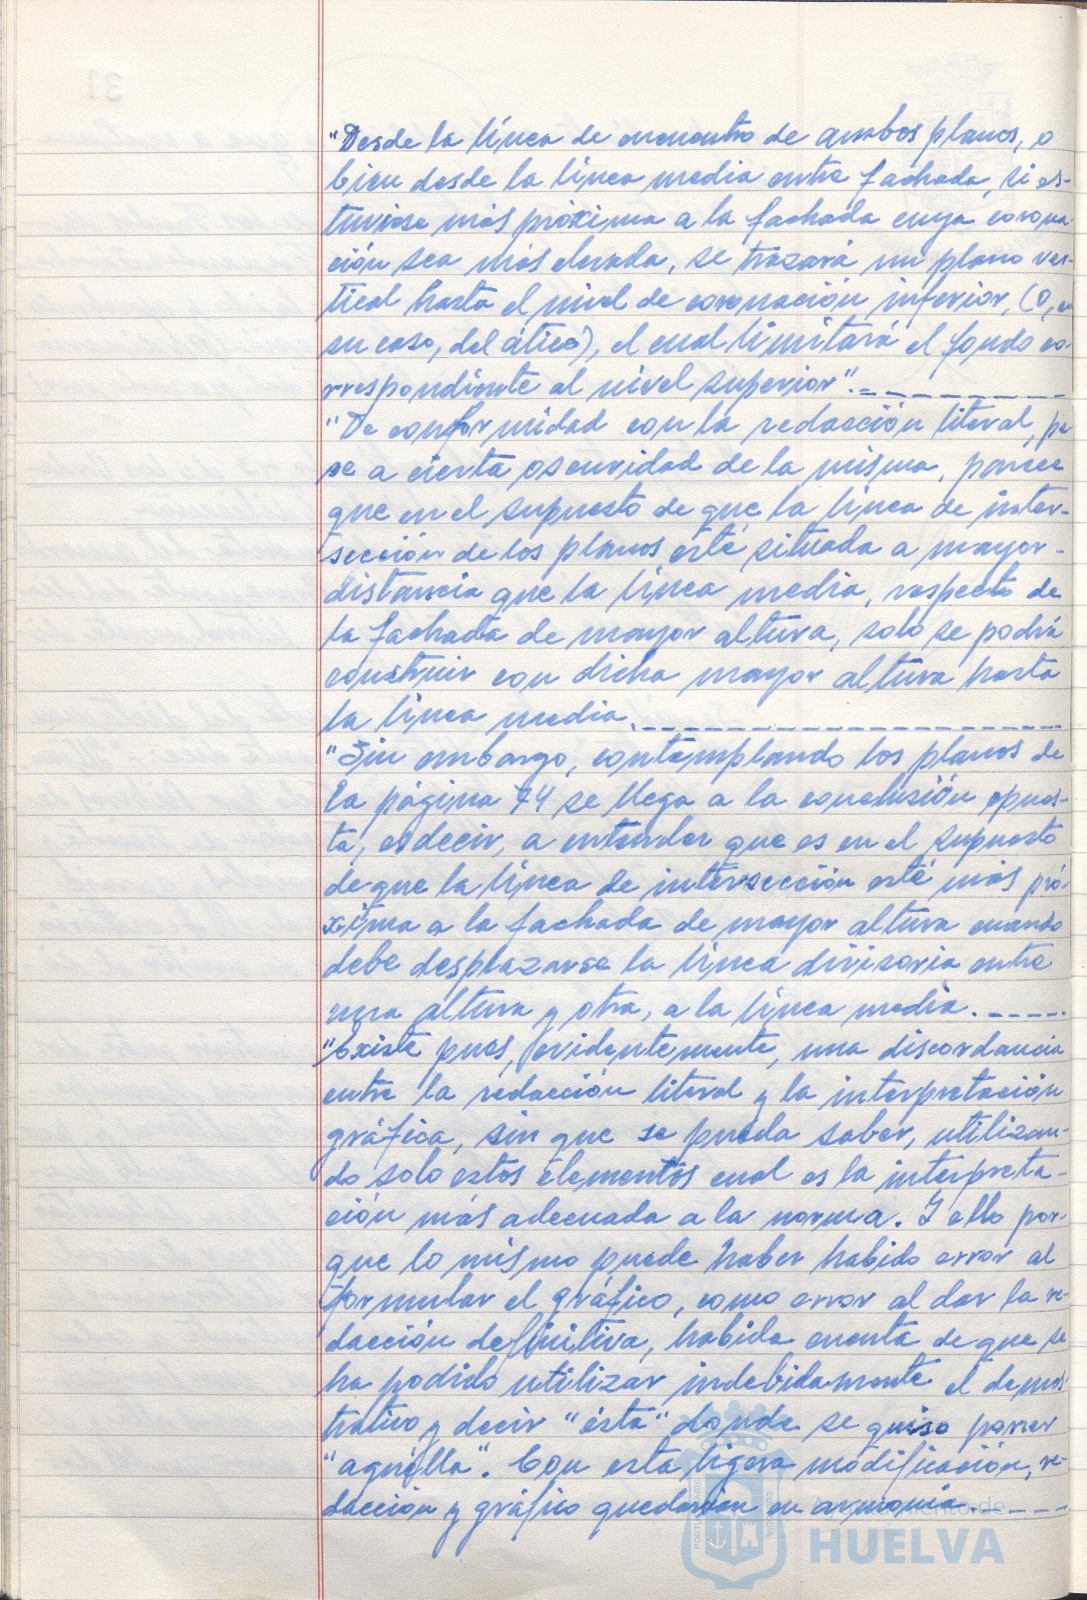 "Desde la línea de encuentro de ambos planos, o
bien desde la línea media entre fachada, si es-
tuviese más próxima a la fachada cuya corona-
ción sea más elevada, se trazará un plano ver-
tical hasta el nivel de coronación inferior, (o, en
su caso, del ático), el cual limitará el fondo co-
rrespondiente al nivel superior".-----------
"De conformidad con la redacción literal, pe
se a cierta oscuridad de la misma, parece
que en el supuesto de que la línea de inter-
sección de los planos esté situada a mayor-
distancia que la línea media, respecto de
la fachada de mayor altura, solo se podrá
construir con dicha mayor altura hasta
la línea media.--------------------
"Sin embargo, contemplando los planos de
la página 74 se llega a la conclusión opues-
ta, es decir, a entender que es en el supuesto
de que la línea de intersección esté más pró-
xima a la fachada de mayor altura cuando
debe desplazarse la línea divisoria entre
una altura y otra, a la línea media.-----
"Existe pues, evidentemente, una discordancia
entre la redacción literal y la interpretación
gráfica, sin que se pueda saber, utilizan-
do solo estos elementos cual es la interpreta-
ción más adecuada a la norma. Y ello por-
que lo mismo puede haber habido error al
formular el gráfico, como error al dar la re-
dacción definitiva, habida cuenta de que se
ha podido utilizar indebidamente el demos
trativo y decir "ésta" donde se quiso poner
"aquélla". Con esta ligera modificación, re-
dacción y gráfico quedarían en armonía.----
Ayuntamiento de
HUELVA